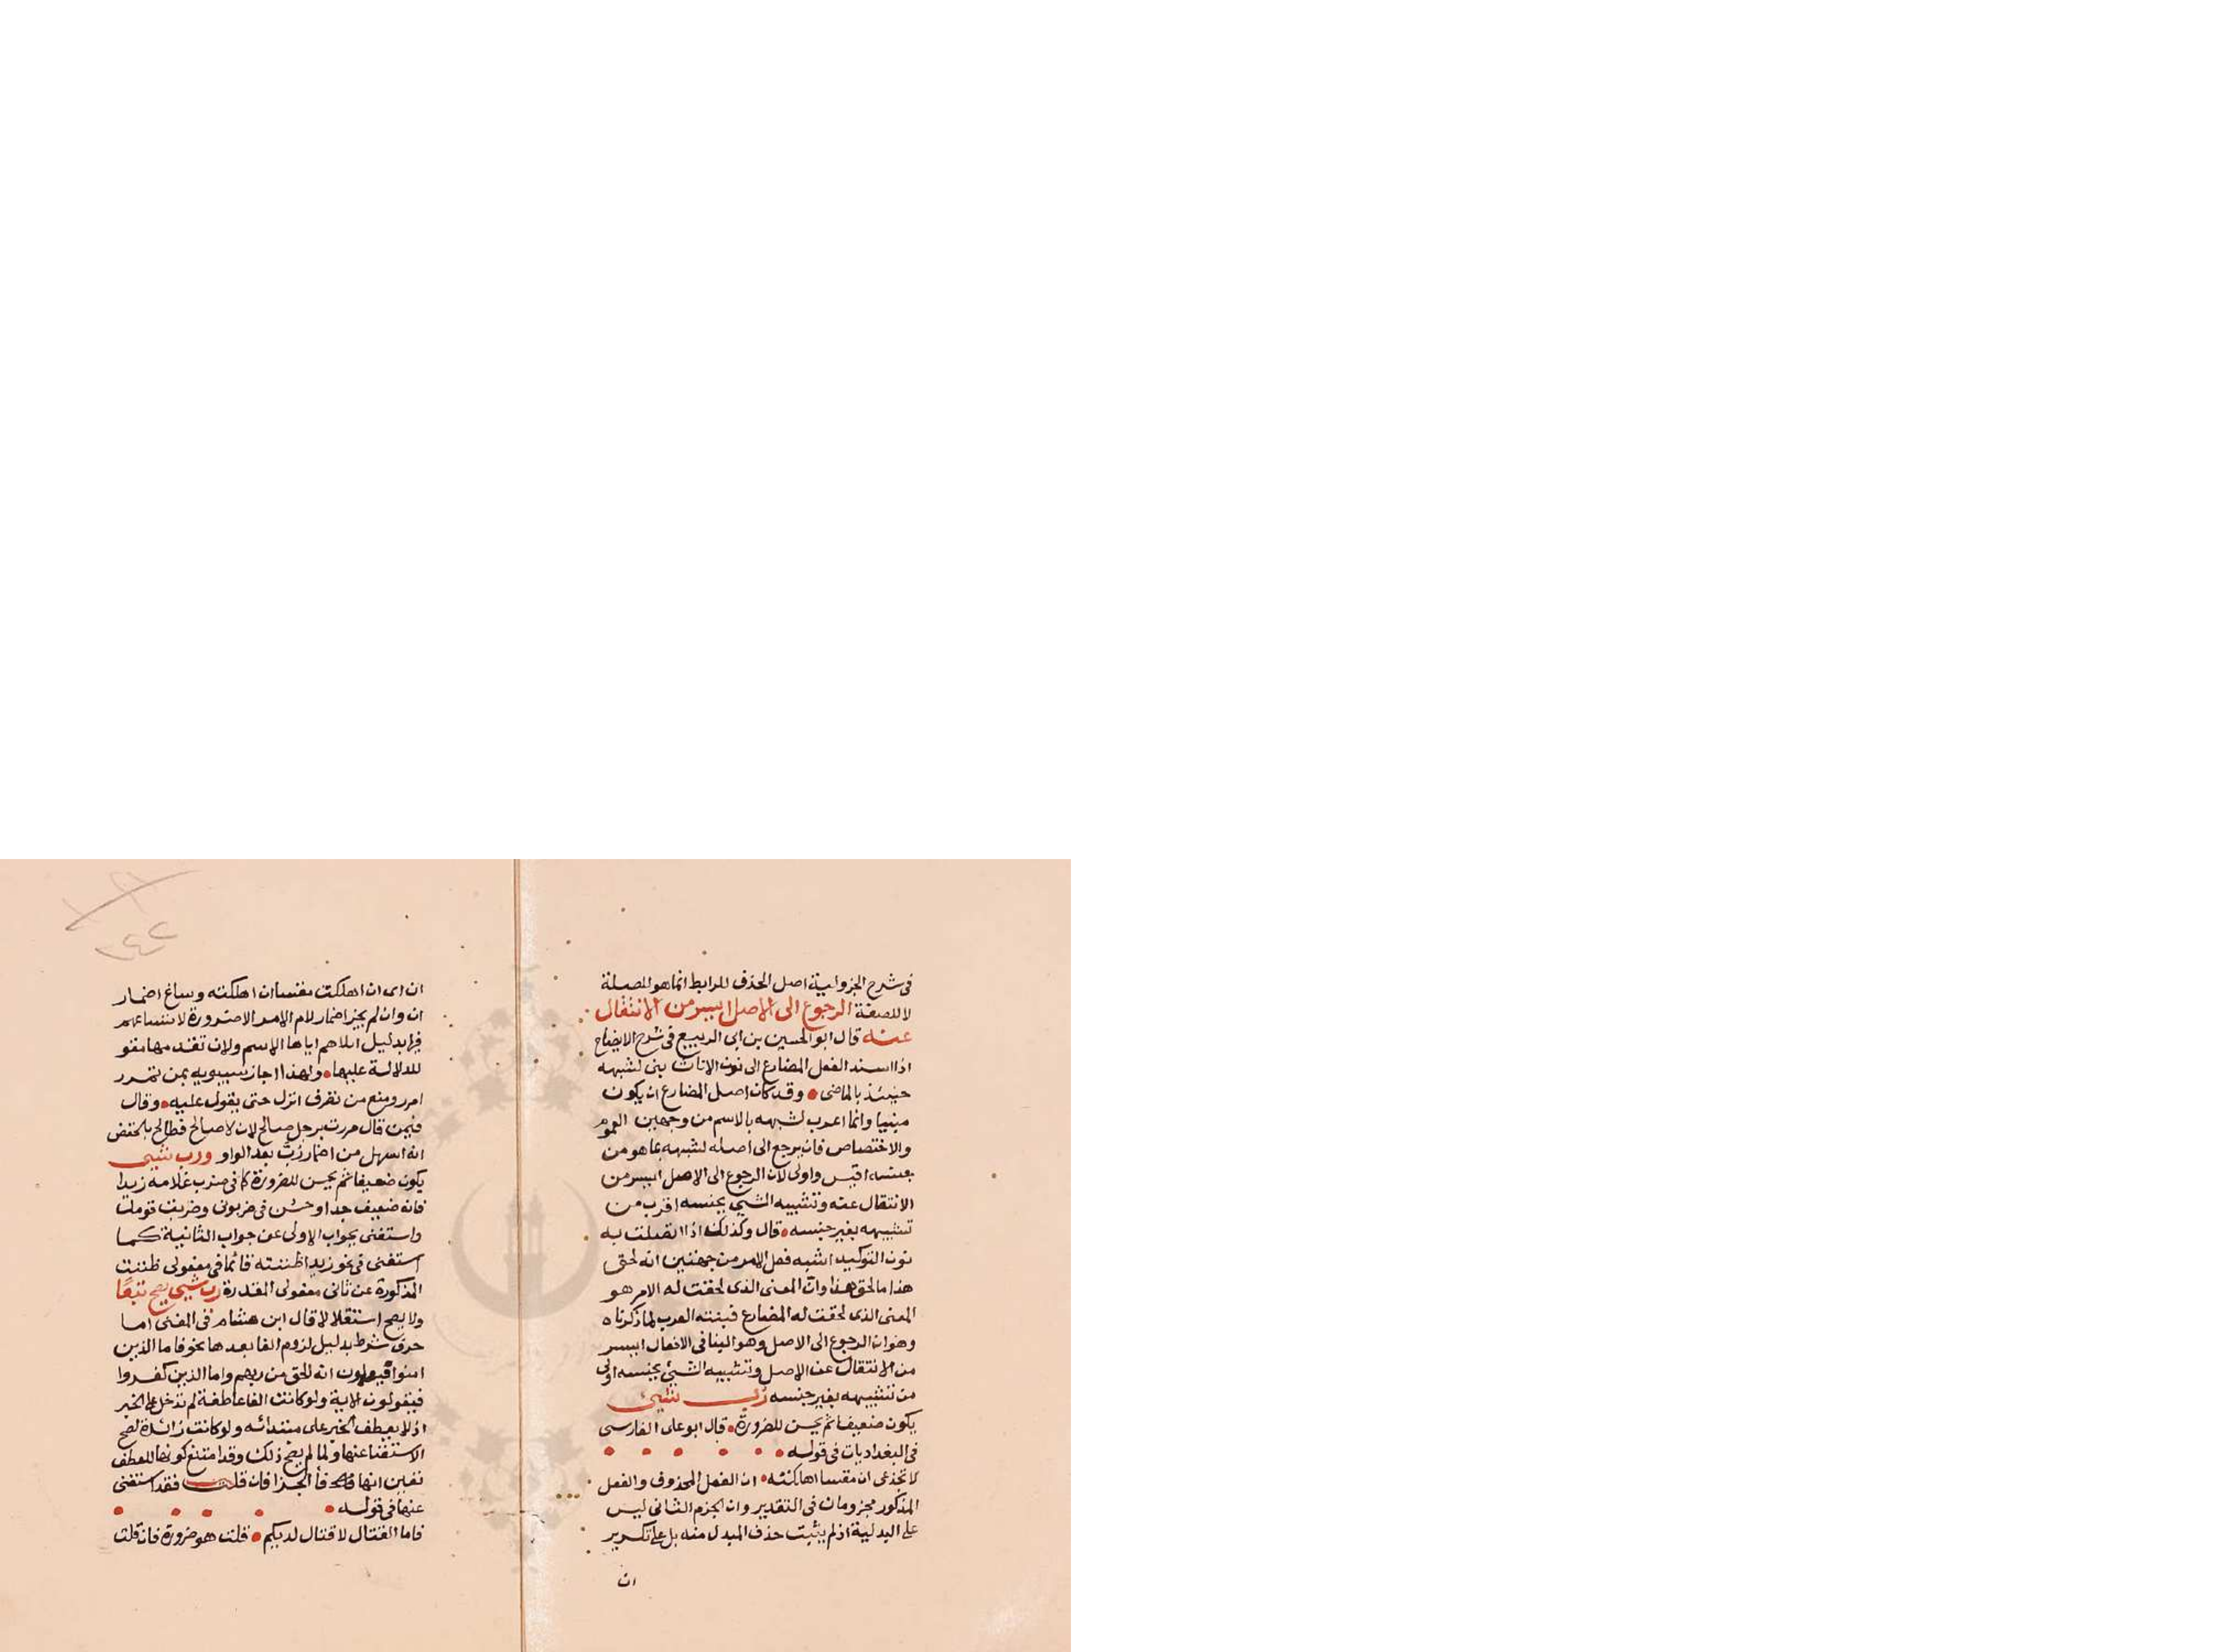 فى شرح الجزولية اصل الحذف للرابط انما هو للصلة
لا للصفة الرجوع الى الاصل ايسر من الانتقال
عنه قال ابو الحسين بن ابى الربيع فى شرح الايضاح
اذا اسند الفعل المضارع الى نون الاناث بنى لشبهه
حينئذ بالماضى • وقد كان اصل المضارع ان يكون
مبنيا وانما اعرب لشبهه بالاسم من وجهين العموم
والاختصاص فان يرجع الى اصله لشبهه بما هو من
اقيس واولى لان الرجوع الى الاصل ايسر من
الانتقال عنه وتشبيه الشيى بجنسه اقرب من
تشبيهه بغير جنسه • قال وكذلك اذا اتصلت به
نون التوكيد اشبه فعل الامر من جهتين انه لحق
هذا ما لحق هذا وان المعنى الذى لحقت له الامر هو
المعنى الذى لحقت له المضارع فبنته العرب لما ذكرناه
وهو ان الرجوع الى الاصل وهو البنا فى الافعال ايسر
من الانتقال عن الاصل وتشبيه الشيئ بجنسه اولى
من تشبيهه بغير جنسه رب شيئ
يكون ضعيفا ثم يحسن للضرورة • قال ابو على الفارسى
فى البغداديات فى قوله •
لا تجزعى ان منفسا اهلكته • ان الفعل المحذوف والفعل
المذكور مجزومان فى التقدير وان الجزم الثانى ليس
على البدلية اذ لم يثبت حذف المبدل منه بل على تكرير
ان
٢٤٢
ان اى ان اهلكت منفسا ان اهلكته وساغ اضمار
ان وان لم يجز اضمار لام الامر الا ضرورة لاتساعهم
فيها بدليل ايلاهم اياها الاسم ولان تقدمها مقو
للدلالة عليها • ولهذا اجاز سيبويه بمن تمرر
امرر ومنع من تضرب انزل حتى يقول عليه • وقال
فيمن قال مررت برجل صالح لان لا صالح فطالح بالخفض
انه اسهل من اضمار رب بعد الواو ورب شيى
يكون ضعيفا ثم يحسن للضرورة كما فى ضرب غلامه زيدا
فانه ضعيف جدا وحسن فى ضربونى وضربت قومك
واستغنى بجواب الاولى عن جواب الثانية كما
استغنى فى نحو زيدا ظننته قائما فى مفعولى ظننت
المذكورة عن ثانى مفعولى المقدرة رب شيى يصح تبعا
ولا يصح استقلالا قال ابن هشام فى المغنى اما
حرف شرط بدليل لزوم الفا بعدها نحو فاما الذين
امنوا فيعلمون انه الحق من ربهم واما الذين كفروا
فيقولون الاية ولو كانت الفا عاطفة لم تدخل على الخبر
اذ لا يعطف الخبر على مبتدائه ولو كانت زائدة لصح
الاستغنا عنها ولما لم يصح ذلك وقد امتنع كونها للعطف
تعين انها فا الجزا فان قلت فقد استغنى
عنها فى قوله •
فاما القتال لا قتال لديكم • قلت هو ضرورة فان قلت